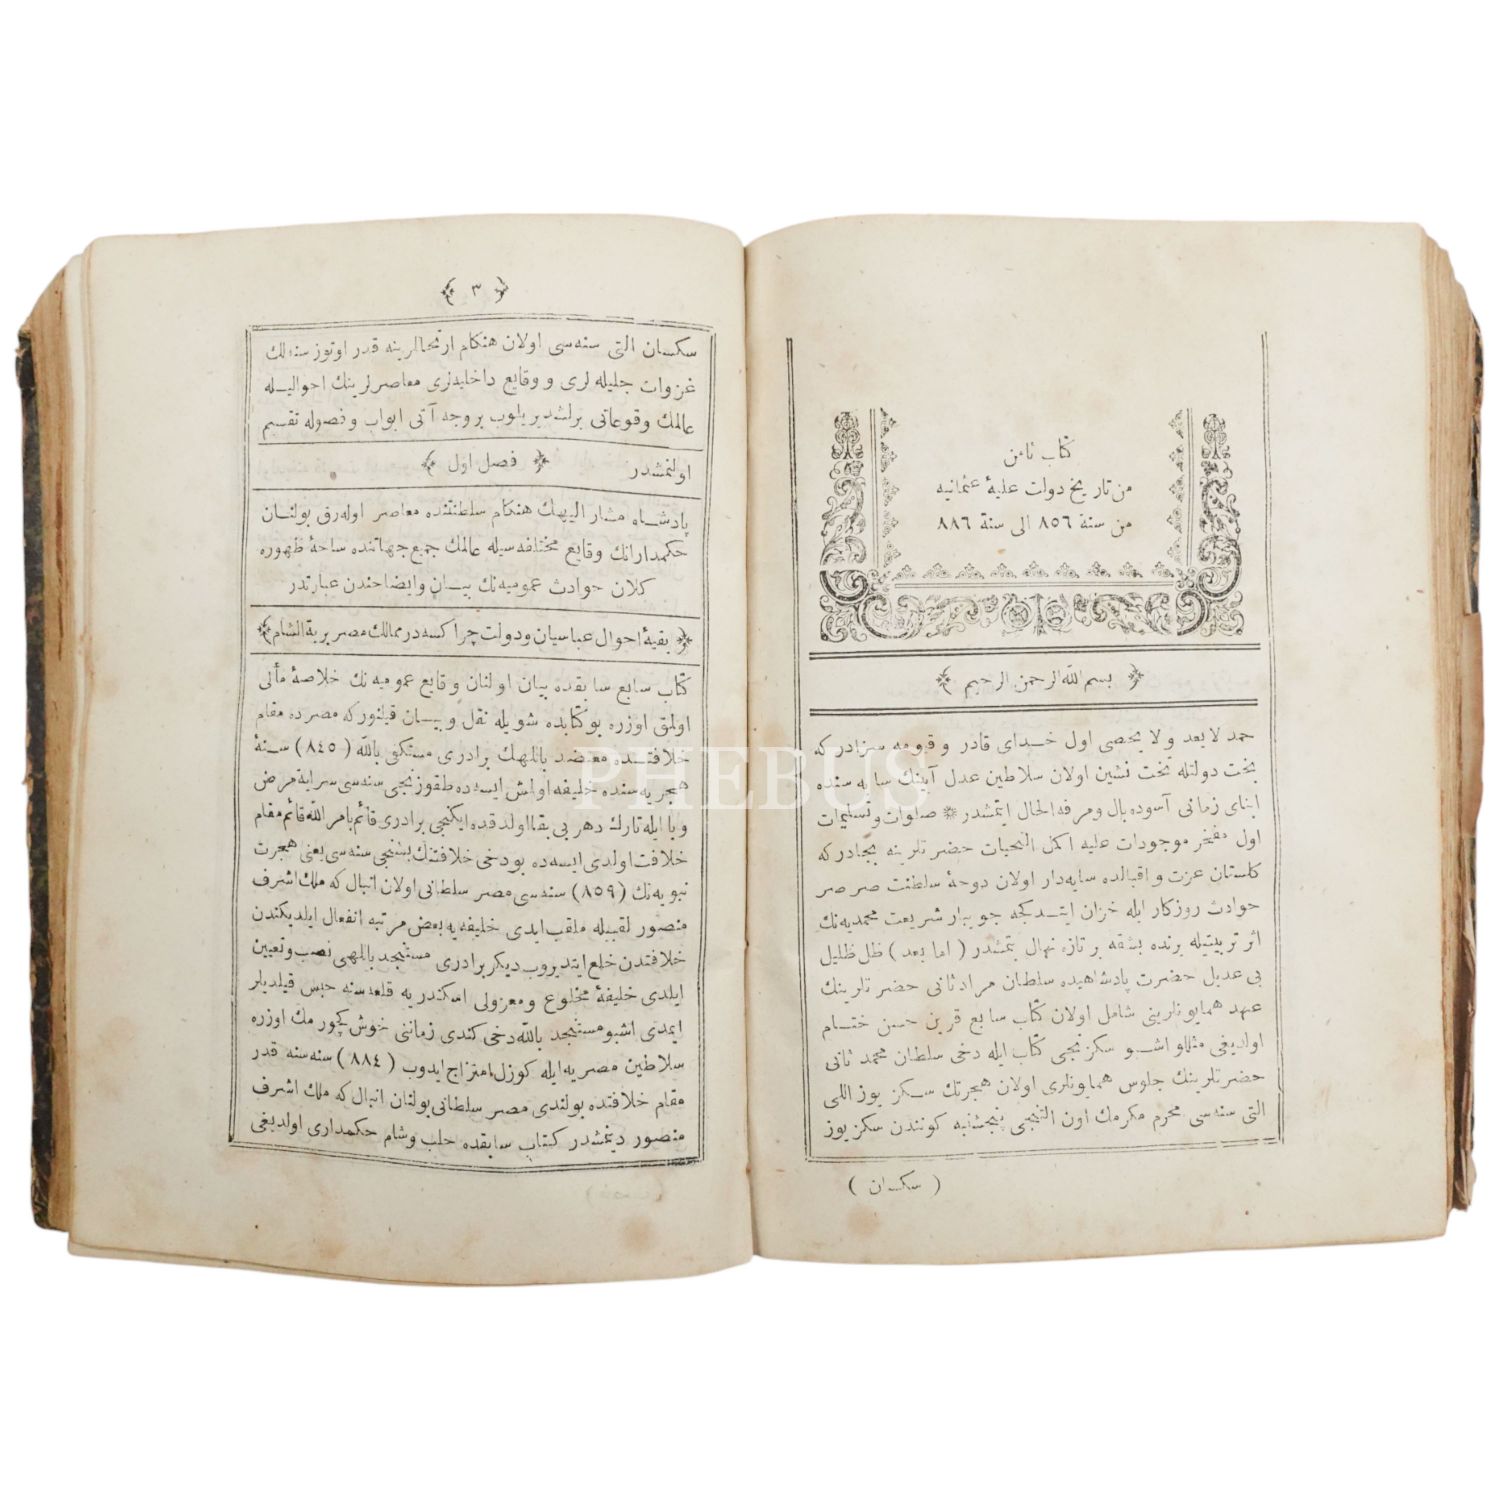 كتاب ثامن
من تاريخ دولت عليهٔ عثمانيه
من سنة ٨٥٦ الى سنة ٨٨٦
بسم الله الرحمن الرحيم
حمد لا يعد و لا يحصى اول خداى قادر و قيومه سزادر كه
بخت دولتله تخت نشين اولان سلاطين عدل آيينك سايه سنده
ابناى زمانى آسوده بال و مرفه الحال ايتمشدر * صلوات و تسليمات
اول مفخر موجودات عليه اكمل التحيات حضرتلرينه بجادر كه
كلستان عزت و اقبالده سايه دار اولان دوحهٔ سلطنت صرصر
حوادث روزكار ايله خزان ايتدكجه جويبار شريعت محمديه نك
اثر تربيتيله يرنده بشقه بر تازه نهال بتمشدر ( اما بعد ) ظل ظليل
بى عديل حضرت پادشاهيده سلطان مراد ثانى حضرتلرينك
عهد همايونلرينى شامل اولان كتاب سابع قرين حسن ختام
اولديغى مثللو اشبو سكزنجى كتاب ايله دخى سلطان محمد ثانى
حضرتلرينك جلوس همايونلرى اولان هجرتك سكز يوز اللى
التى سنه سى محرم مكرمك اون التنجى پنجشنبه كونندن سكز يوز
( سكسان )
﴿ ٣ ﴾
سكسان التى سنه سى اولان هنكام ارتحالرينه قدر اوتوز سنه لك
غزوات جليله لرى و وقايع داخليه لرى معاصرلرينك احواليله
عالمك وقوعاتى برلشديريلوب بر وجه آتى ابواب و فصوله تقسيم
اولنمشدر ﴿ فصل اول ﴾
پادشاه مشار اليهك هنكام سلطنتنده معاصر اوله رق بولنان
حكمدارانك وقايع مختلفه سيله عالمك جميع جهاتنده ساحهٔ ظهوره
كلان حوادث عموميه نك بيان و ايضاحندن عبارتدر
﴿ بقيهٔ احوال عباسيان و دولت چراكسه در ممالك مصر بربة الشام ﴾
كتاب سابع سابقده بيان اولنان وقايع عموميه نك خلاصهٔ مألى
اولمق اوزره بو كتابده شويله نقل و بيان قيلنور كه مصرده مقام
خلافتده معتضد باللهك برادرى مستكفى بالله ( ٨٤٥ ) سنهٔ
هجريه سنده خليفه اولمش ايسه ده طقوزنجى سنه سى سرايه مرض
وبا ايله تارك دهر بى بقا اولدقده ايكنجى برادرى قائم بامر الله قائم مقام
خلافت اولدى ايسه ده بو دخى خلافتنك بشنجى سنه سى يعنى هجرت
نبويه نك ( ٨٥٩ ) سنه سى مصر سلطانى اولان اينال كه ملك اشرف
منصور لقبيله ملقب ايدى خليفه يه بعض مرتبه انفعال ايلديكندن
خلافتدن خلع ايتديروب ديكر برادرى مستنجد باللهى نصب و تعيين
ايلدى خليفهٔ مخلوع و معزولى اسكندريه قلعه سنه حبس قيلديلر
ايمدى اشبو مستنجد بالله دخى كندى زماننى خوش كچورمك اوزره
سلاطين مصريه ايله كوزل امتزاج ايدوب ( ٨٨٤ ) سنه سنه قدر
مقام خلافتده بولندى مصر سلطانى بولنان اينال كه ملك اشرف
منصور ديمشدر كتاب سابقده حلب و شام حكمدارى اولديغى
PHEBUS